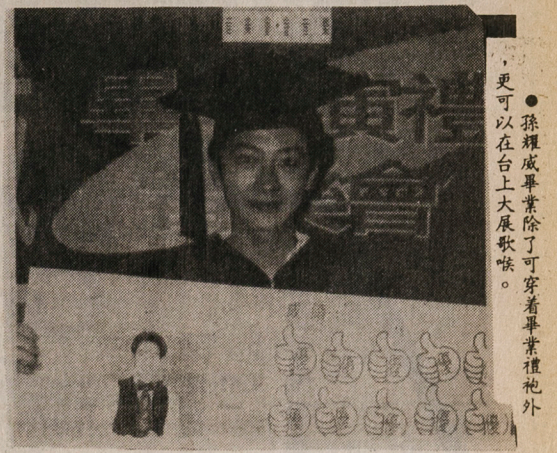 ●孫耀威畢業除了可穿着畢業禮袍外
，更可以在台上大展歌喉。
畢
禮
會
成績
優 優 優 優
優 優 優 優 優